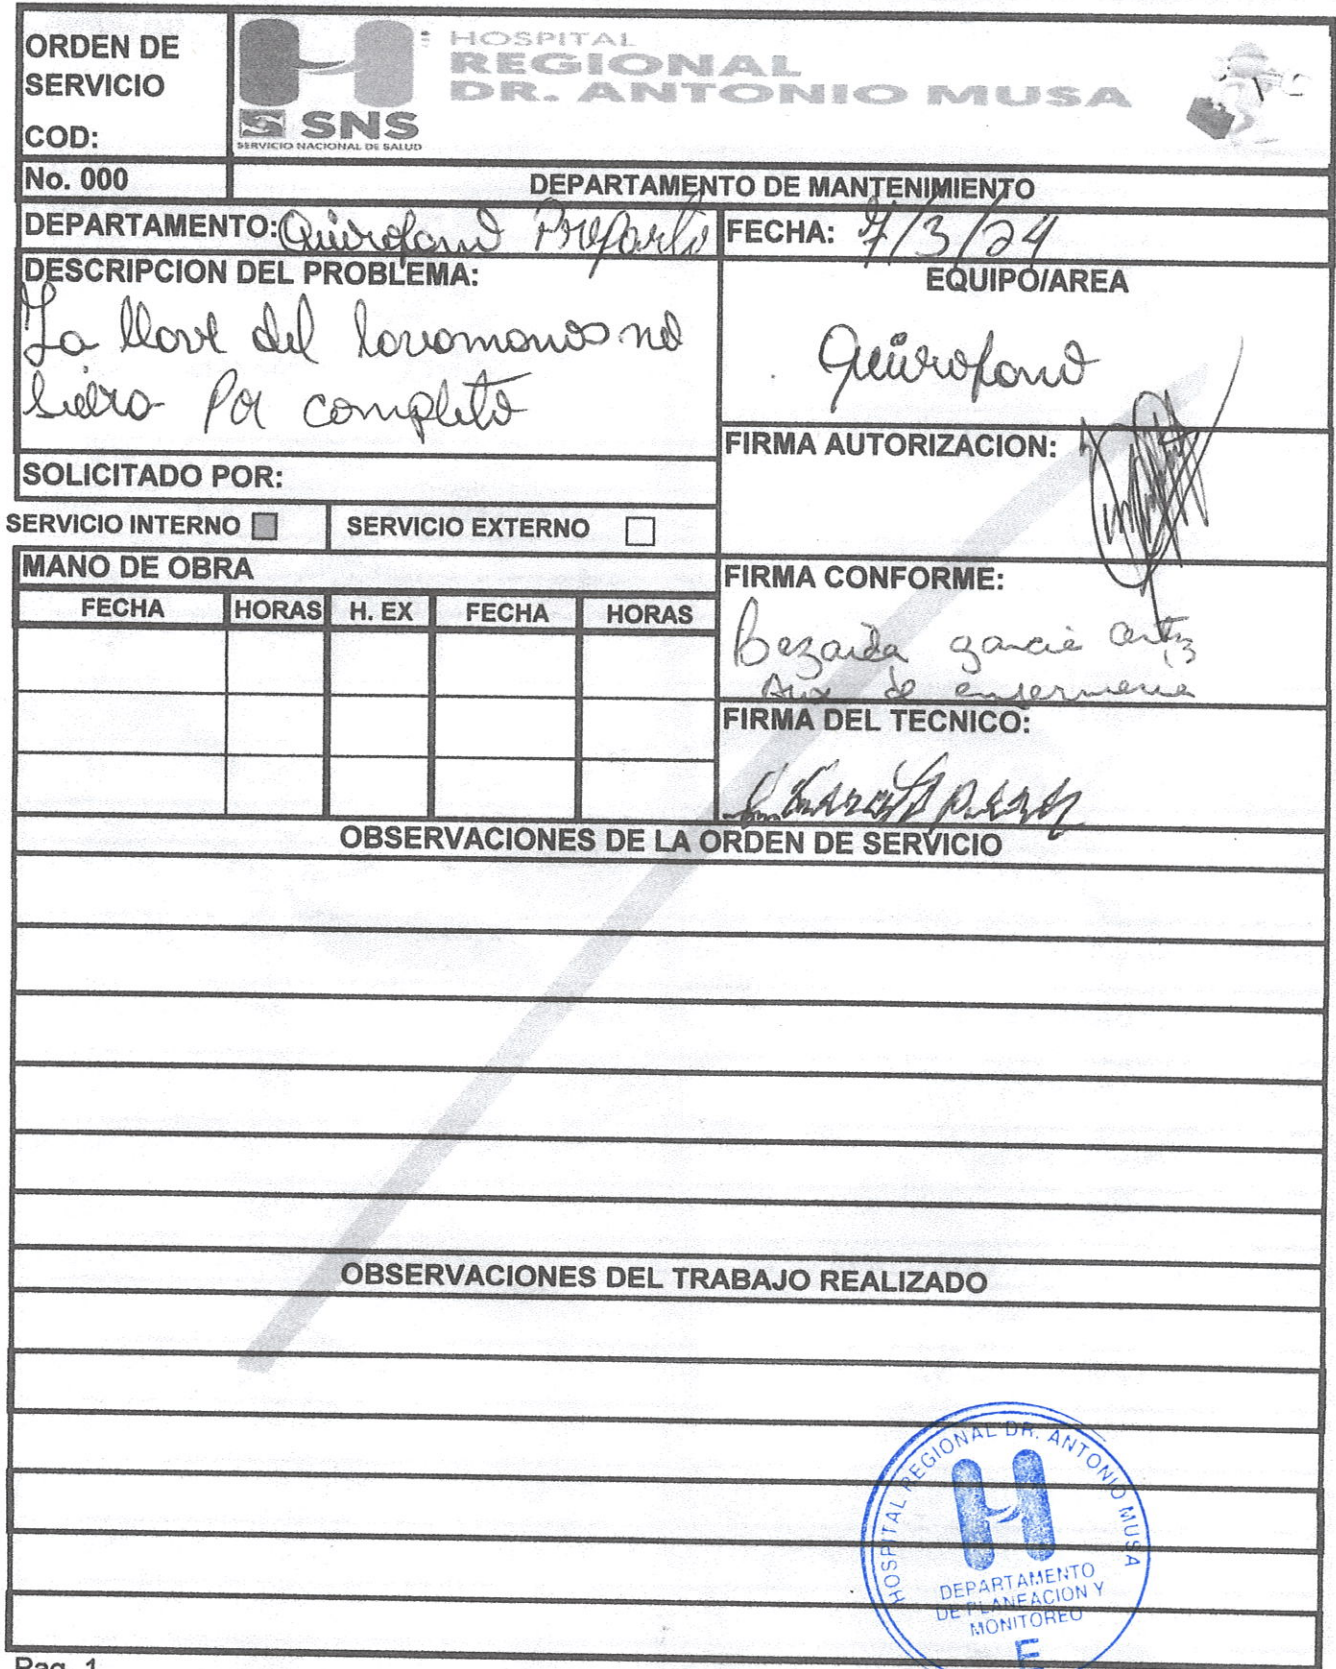 ORDEN DE
SERVICIO
COD:
HOSPITAL
REGIONAL
DR. ANTONIO MUSA
SNS
SERVICIO NACIONAL DE SALUD
No. 000
DEPARTAMENTO DE MANTENIMIENTO
DEPARTAMENTO: Quirofano Preparto
FECHA: 7/3/24
DESCRIPCION DEL PROBLEMA:
La llave del lavamanos no
sierra Por completo
EQUIPO/AREA
Quirofano
FIRMA AUTORIZACION:
SOLICITADO POR:
SERVICIO INTERNO
SERVICIO EXTERNO
MANO DE OBRA
FECHA HORAS H. EX FECHA HORAS
FIRMA CONFORME:
garcia
Aux de enfermeria
FIRMA DEL TECNICO:
OBSERVACIONES DE LA ORDEN DE SERVICIO
OBSERVACIONES DEL TRABAJO REALIZADO
HOSPITAL REGIONAL DR. ANTONIO MUSA
DEPARTAMENTO
DE PLANEACION Y
MONITOREO
E
Pag. 1